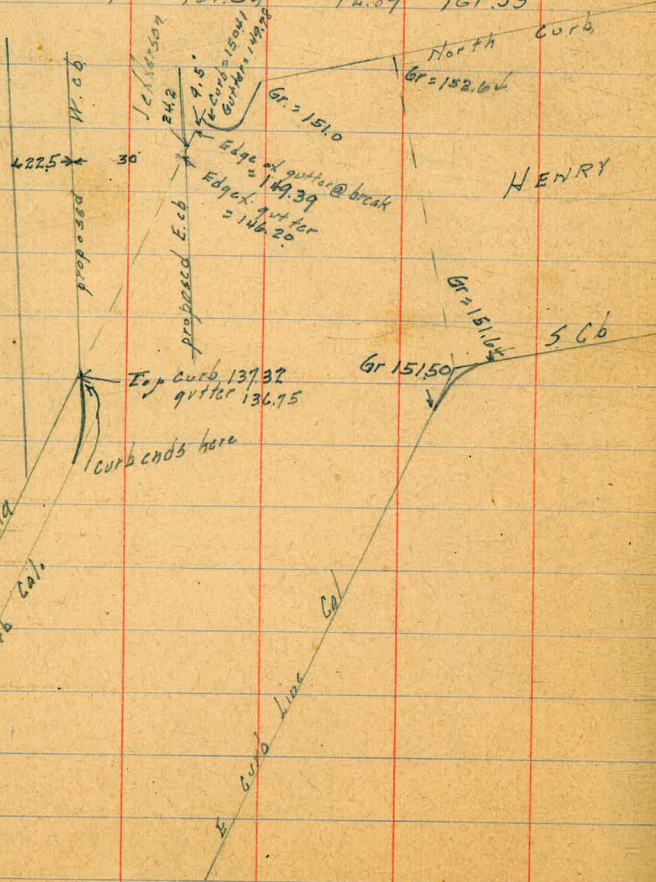 161.53
North Curb
Gr=152.64
Jefferson
W. cb
proposed
24.2
9.5'
Curb=150.41
Gutter=149.98
Gr.=151.0
422.5
30
Edge of gutter@break
=149.39
Edge of gutter
=146.20
proposed E.cb
HENRY
Gr=151.64
S Cb
Gr 151.50
Top curb 137.32
gutter 136.75
Curb ends here
Cal.
E Curb Line Cal